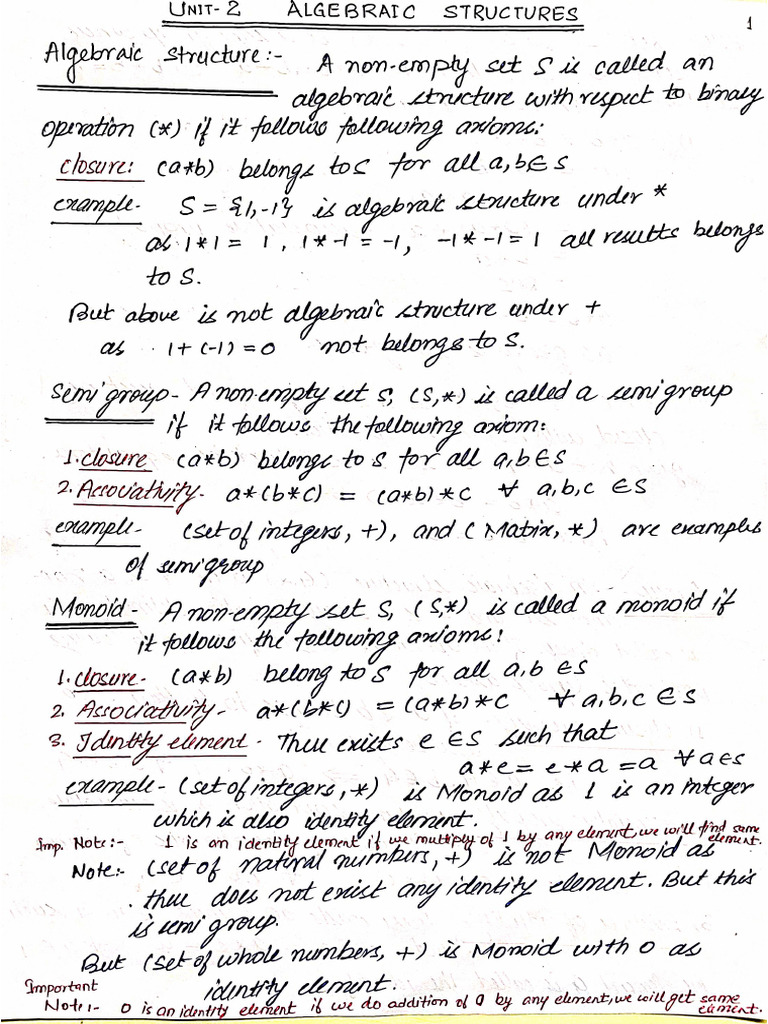 UNIT-2 ALGEBRAIC STRUCTURES
1
Algebraic structure:- A non-empty set S is called an
algebraic structure with respect to binary
operation (*) if it follows following axioms:
closure: (a*b) belongs to S for all a,b∈S
example- S = {1,-1} is algebraic structure under *
as 1*1 = 1, 1*-1 = -1, -1*-1 = 1 all results belongs
to S.
But above is not algebraic structure under +
as 1+(-1)=0 not belongs to S.
Semi group- A non-empty set S, (S,*) is called a semigroup
if it follows the following axiom:
1. closure (a*b) belongs to S for all a,b∈S
2. Associativity- a*(b*c) = (a*b)*c ∀ a,b,c ∈S
example- (set of integers, +), and (Matrix, *) are examples
of semigroup
Monoid- A non-empty set S, (S,*) is called a monoid if
it follows the following axioms:
1. closure- (a*b) belong to S for all a,b ∈S
2. Associativity- a*(b*c) = (a*b)*c ∀ a,b,c ∈S
3. Identity element- There exists e ∈S such that
a*e = e*a = a ∀ a∈S
example- (set of integers, *) is Monoid as 1 is an integer
which is also identity element.
Imp. Note:- 1 is an identity element if we multiply of 1 by any element, we will find same
element.
Note:- (set of natural numbers, +) is not Monoid as
there does not exist any identity element. But this
is semi group.
But (set of whole numbers, +) is Monoid with 0 as
identity element.
Important
Note:- 0 is an identity element if we do addition of 0 by any element, we will get same
element.